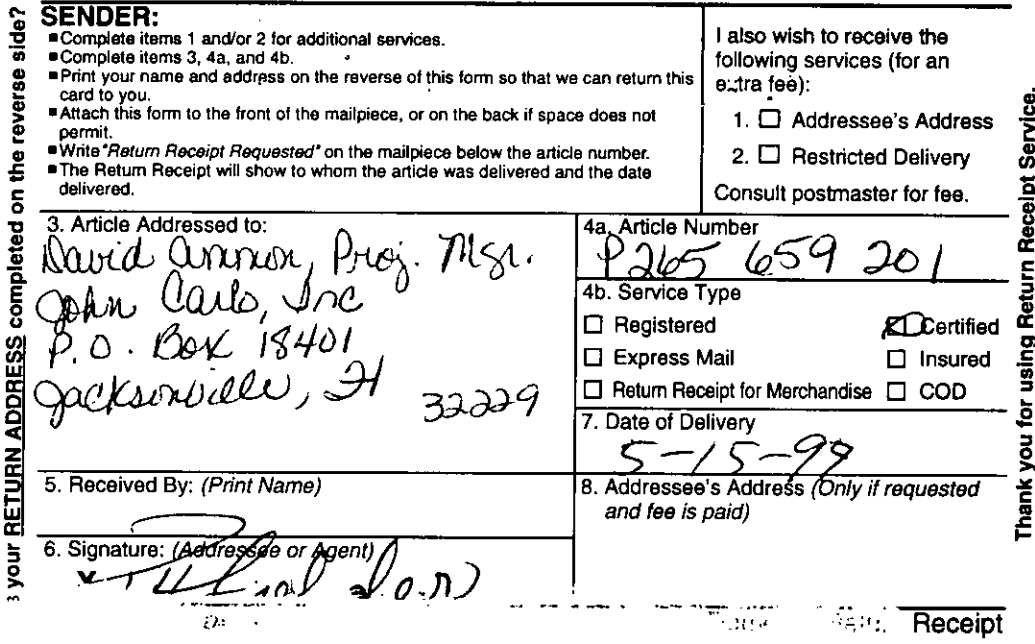 s your RETURN ADDRESS completed on the reverse side?
SENDER:
■Complete items 1 and/or 2 for additional services.
■Complete items 3, 4a, and 4b.
■Print your name and address on the reverse of this form so that we can return this
card to you.
■Attach this form to the front of the mailpiece, or on the back if space does not
permit.
■Write "Return Receipt Requested" on the mailpiece below the article number.
■The Return Receipt will show to whom the article was delivered and the date
delivered.
I also wish to receive the
following services (for an
extra fee):
1. ☐ Addressee's Address
2. ☐ Restricted Delivery
Consult postmaster for fee.
3. Article Addressed to:
David Ammon, Proj. Mgr.
John Carlo, Inc
P.O. Box 18401
Jacksonville, Fl
32229
4a. Article Number
P265 659 201
4b. Service Type
☐ Registered
☒ Certified
☐ Express Mail
☐ Insured
☐ Return Receipt for Merchandise ☐ COD
7. Date of Delivery
5-15-99
5. Received By: (Print Name)
8. Addressee's Address (Only if requested
and fee is paid)
6. Signature: (Addressee or Agent)
Receipt
Thank you for using Return Receipt Service.